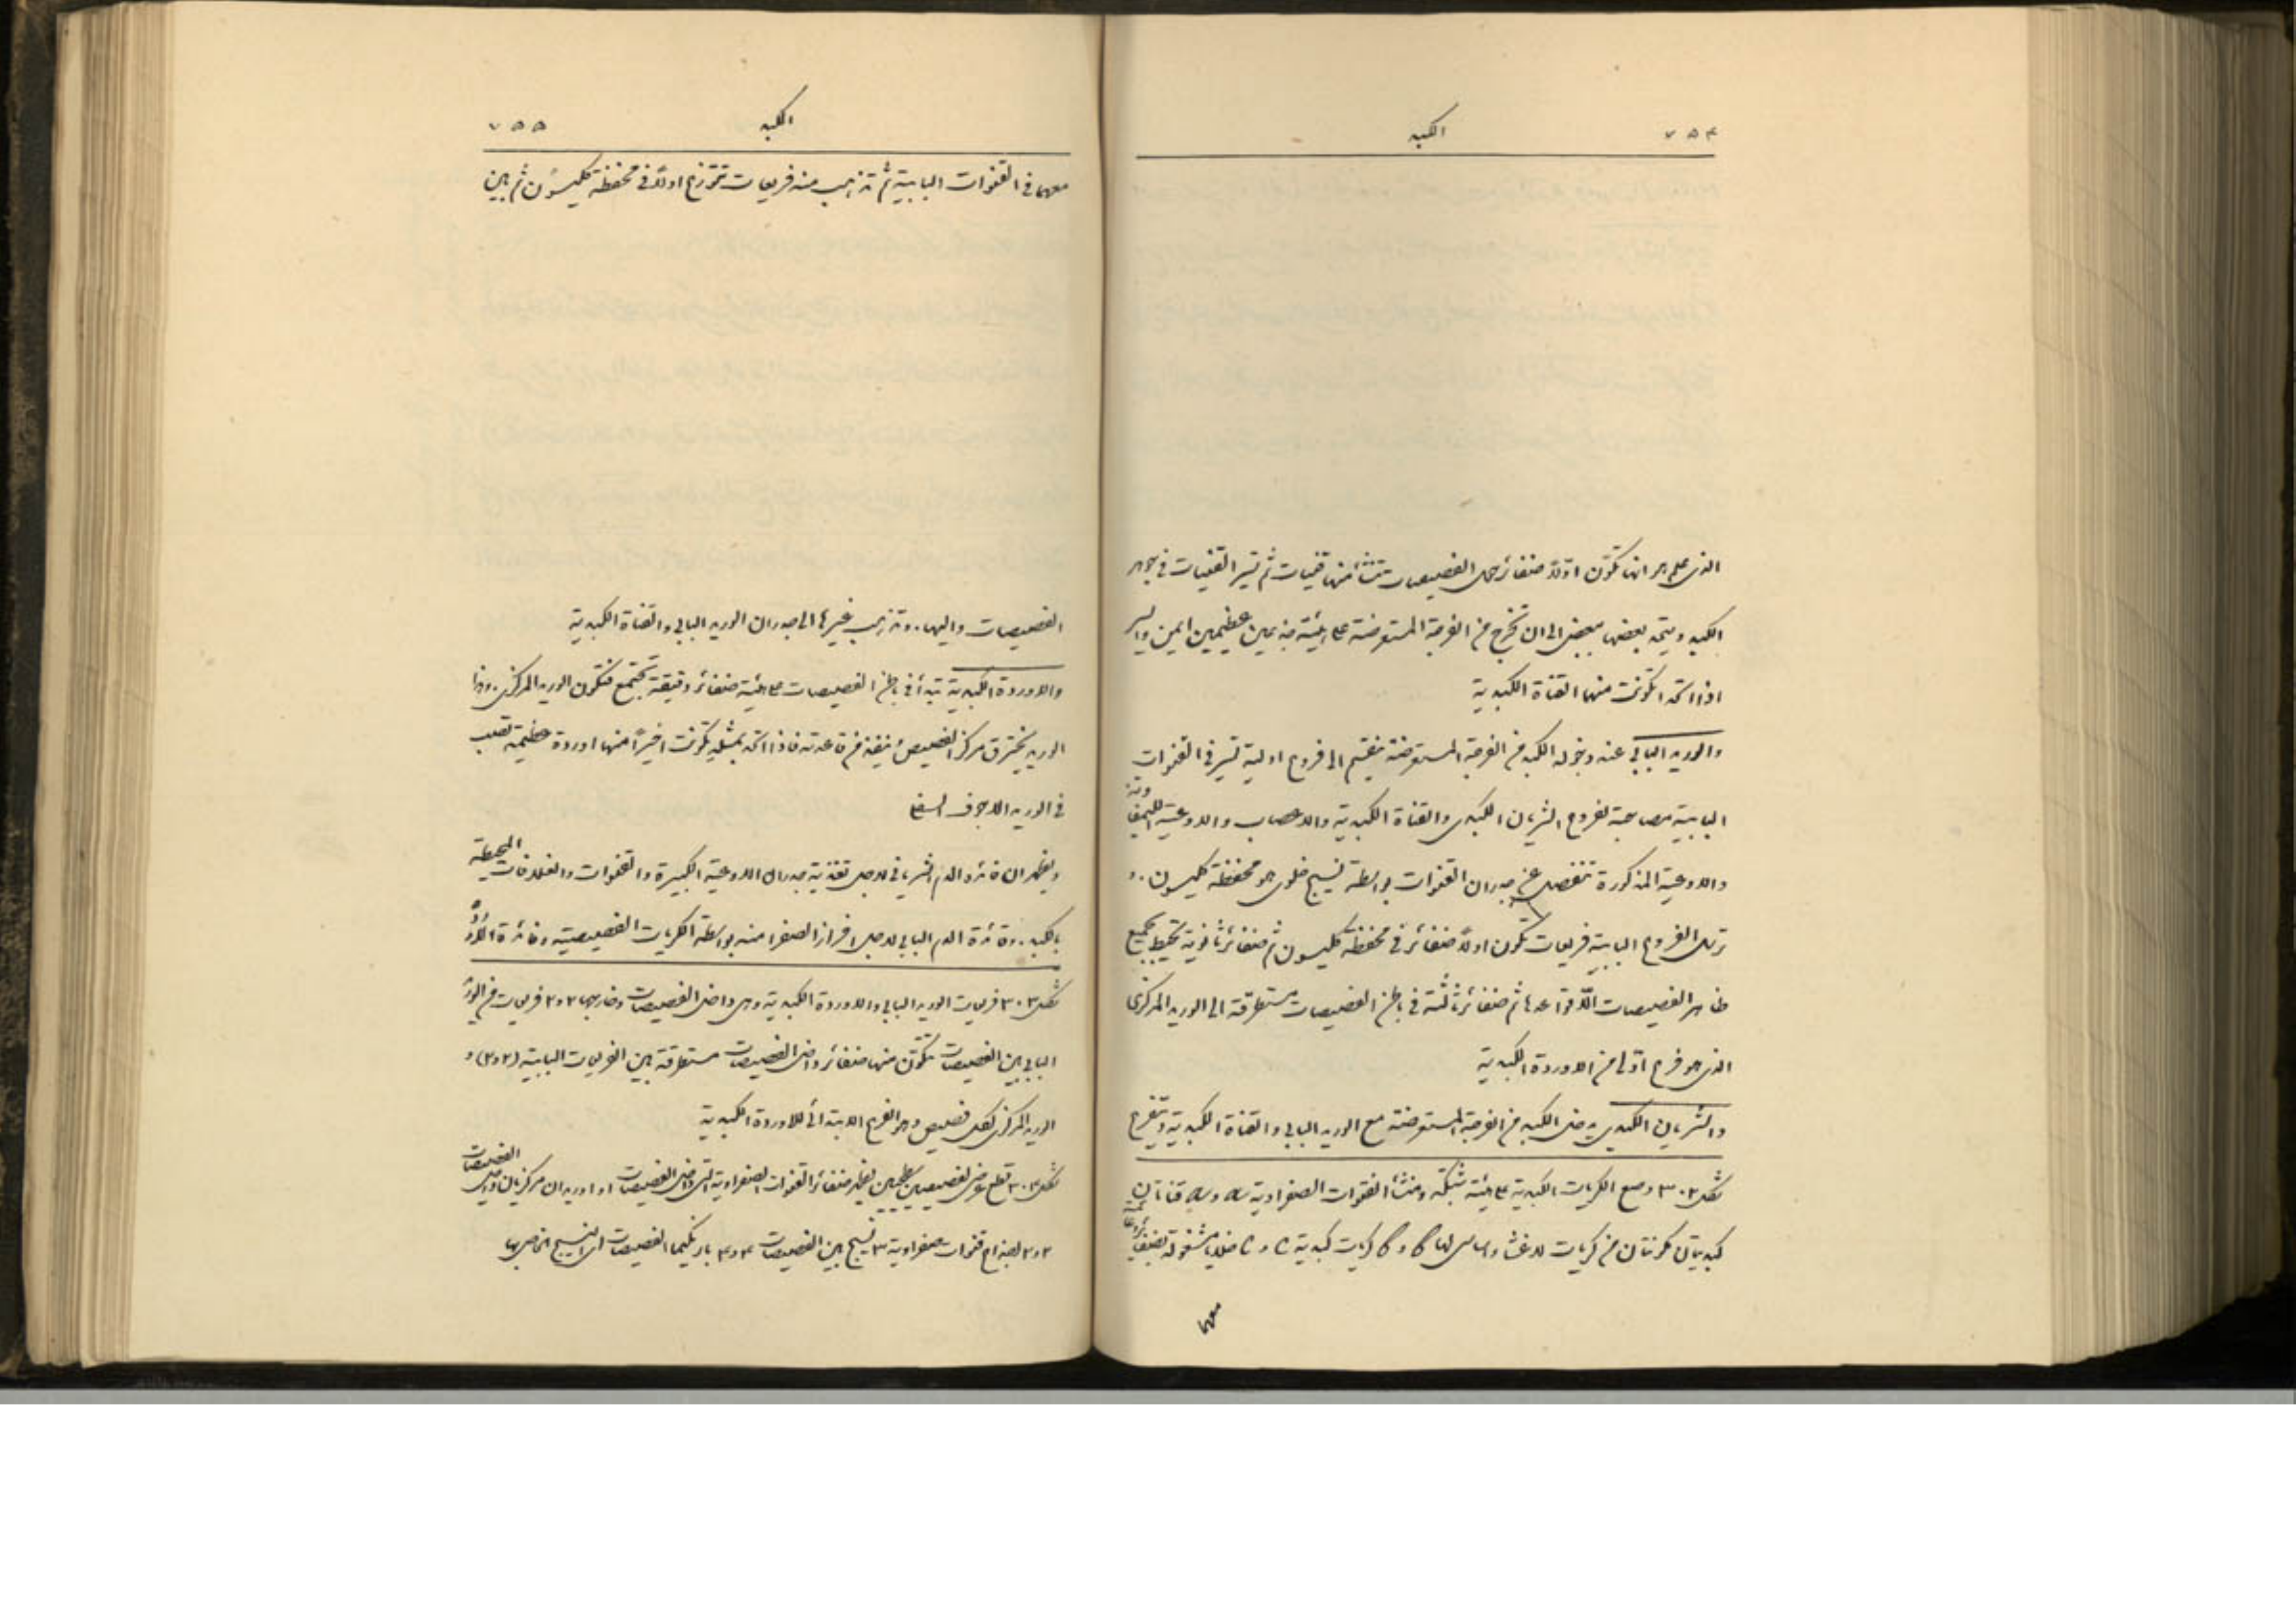 ٧٥٤ الكبد
الذى علم هو انها تكون اولاً ضفائر حول الفصيصات تنشأ منها قنيات ثم تسير القنيات فى جوهر
الكبد ويتحد بعضها ببعض الى ان تخرج من الفرجة المستعرضة على هيئة جذعين عظيمين ايمن وايسر
اذا اتحدا تكونت منهما القناة الكبدية
والوريد البابى عند دخوله الكبد من الفرجة المستعرضة ينقسم الى فروع اولية تسير فى القنوات
البابية مصاحبة لفروع الشريان الكبدى والقناة الكبدية والاعصاب والاوعية الليمفاوية
والاوعية المذكورة تنفصل عن جدران القنوات بواسطة نسيج خلوى هو محفظة كليسون. و
ترسل الفروع البابية فريعات تكون اولاً ضفائر فى محفظة كليسون ثم ضفائر ثانوية تحيط بجميع
ظاهر الفصيصات الا قواعدها ثم ضفائر ثالثة فى باطن الفصيصات مستطرقة الى الوريد المركزى
الذى هو فرع اولى من الاوردة الكبدية
والشريان الكبدى يدخل الكبد من الفرجة المستعرضة مع الوريد البابى والقناة الكبدية ويتفرع
شكل ٣٠٢ وضع الكريات الكبدية على هيئة شبكة ومنشأ القنوات الصفراوية a و a قناتان
كبديتان مكونتان من كريات لا غشاء اساسى لها b و b كريات كبدية c و c خلايا مشغولة
معهما
٧٥٥ الكبد
معهما فى القنوات البابية ثم تذهب منه فريعات تتوزع اولاً فى محفظة كليسون ثم بين
الفصيصات واليها. وتذهب غيرها الى جدران الوريد البابى والقناة الكبدية
والاوردة الكبدية تبتدأ فى باطن الفصيصات على هيئة ضفائر دقيقة تجتمع فتكون الوريد المركزى. وهذا
الوريد يخترق مركز الفصيص ينفذ من قاعدته فاذا اتحد بمثله تكونت اخيراً منها اوردة عظيمة تصب
فى الوريد الاجوف السفلى
ويظهر ان فائدة الدم الشريانى لاجل تغذية جدران الاوعية الكبيرة والقنوات والغلافات المحيطة
بالكبد. وفائدة الدم البابى لاجل افراز الصفرا منه بواسطة الكريات الفصيصية وفائدة الاوردة
شكل ٣٠٣ فريعات الوريد البابى والاوردة الكبدية وهى داخل الفصيصات وخارجها ٢ و ٢ فريعات من الوريد
البابى بين الفصيصات تتكون منها ضفائر داخل الفصيصات مستطرقة بين الفريعات البابية (٢ و ٢) و
الوريد المركزى لكل فصيص وهو الفرع الابتدائى للاوردة الكبدية
شكل ٣٠٤ قطع عرضى لفصيصين يظهر ضفائر القنوات الصفراوية التى داخل الفصيصات ١ و ١ وريدان مركزيان داخل الفصيصات
٢ و ٢ جذوع قنوات صفراوية ٣ نسيج بين الفصيصات ٤ و ٤ بارنكيما الفصيصات اى النسيج الخاص بها